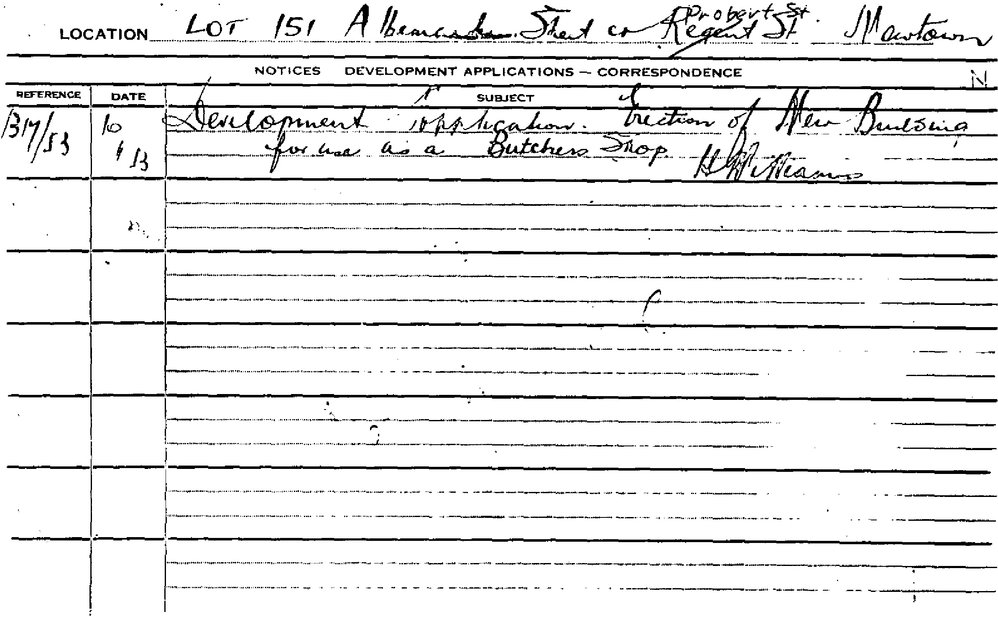 LOCATION LOT 151 Street cr Regent St Probert St. Newtown
NOTICES DEVELOPMENT APPLICATIONS — CORRESPONDENCE
N
REFERENCE DATE SUBJECT
317/53 10 Development Application. Erection of New Building
53 for use as a Butchers Shop. H Williams